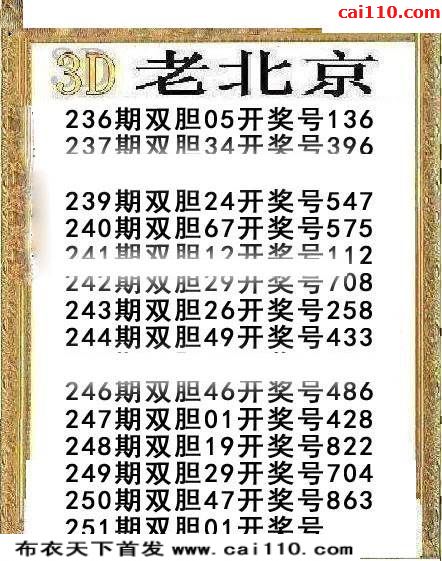 cai110.com
3D 老北京
236期双胆05开奖号136
237期双胆34开奖号396
239期双胆24开奖号547
240期双胆67开奖号575
241期双胆12开奖号112
242期双胆29开奖号708
243期双胆26开奖号258
244期双胆49开奖号433
246期双胆46开奖号486
247期双胆01开奖号428
248期双胆19开奖号822
249期双胆29开奖号704
250期双胆47开奖号863
251期双胆01开奖号
布衣天下首发 www.cai110.com